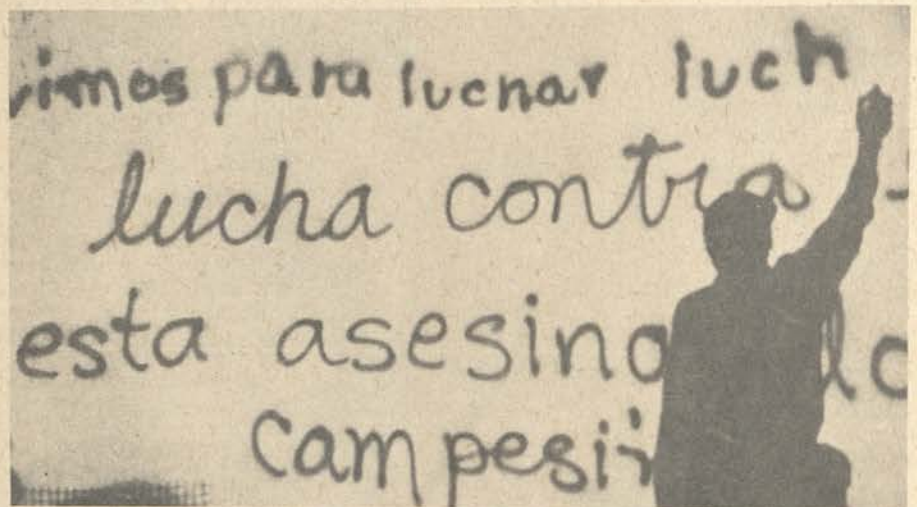 vimos para luchar luch
lucha contra
esta asesina lo
campesi